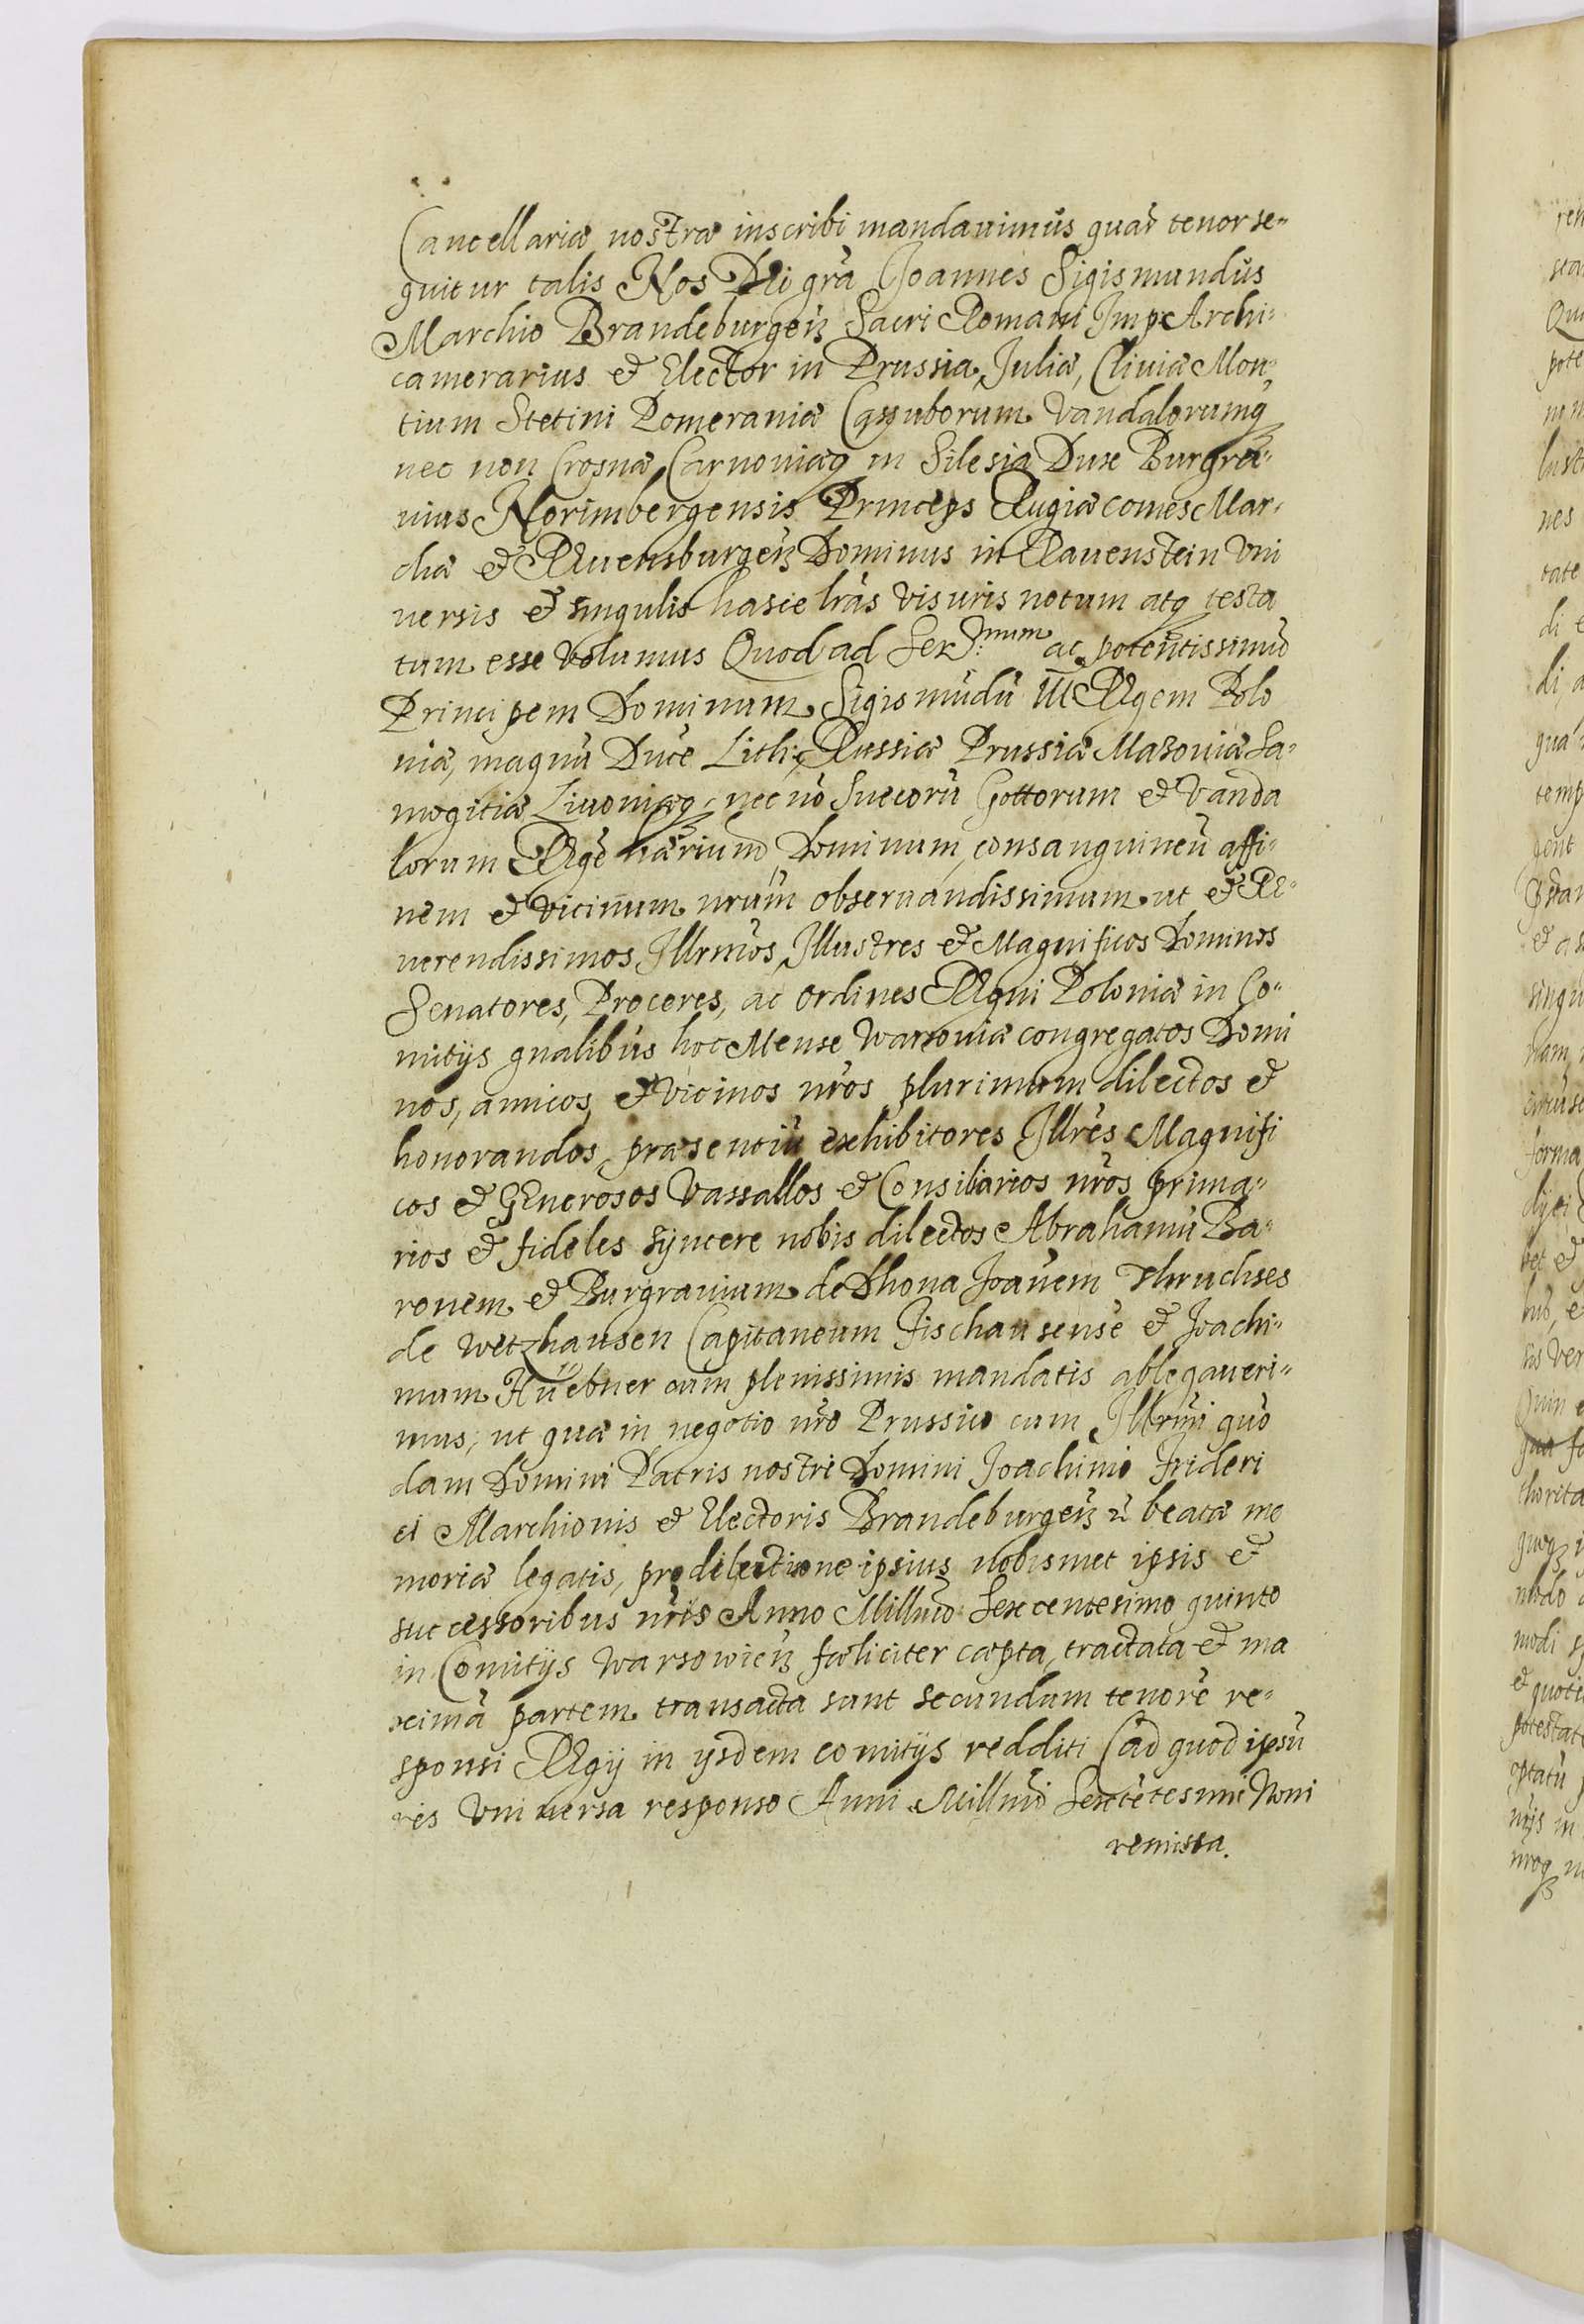 Cancellariæ nostræ inscribi mandauimus quar̃ tenor se-
quitur talis Nos Dei gr̃a Joannes Sigismundus
Marchio Brandeburgeñ Sacri Romani Imp: Archi-
camerarius et Elector in Prussia, Juliæ, Cliuiæ Mon-
tium Stetini Pomeraniæ Cassuborum Vandalorumq
nec non Crosnæ Carnouiæq in Silesia Dux Burgra-
uius Norimbergensis Princeps Rugiæ comes Mar-
chæ et Rauensburgeñ Dominus in Rauenstein Vni
uersis et singulis hasce lr̃as visuris notum atq testa
tum esse volumus Quod ad Ser:mum ac potentissimũ
Principem Dominum Sigismũdũ III Regem Polo
niæ, magnũ Ducẽ Lith: Russiæ Prussiæ Mazouiæ Sa-
mogitiæ Liuoniæq nec nõ Suecorũ Gottorum et Vanda
lorum Regẽ hæriũ Dominum, consanguineũ affi-
nem et vicinum nr̃um obseruandissimum ut et Re-
uerendissimos, Illrmos, Illustres et Magnificos Dominos
Senatores, Proceres, ac ordines Regni Poloniæ in Co-
mitijs gnalibus hoc Mense Warsouiæ congregatos Domi
nos, amicos et vicinos nr̃os plurimum dilectos et
honorandos, præsentiũ exhibitores Illres Magnifi
cos et GEnerosos Vassallos et Consiliarios nr̃os prima-
rios et fideles syncere nobis dilectos Abrahamũ Ba-
ronem et Burgrauium de Dhona Joanem Thruchses
de Wetzhausen Capitaneum Fischausensẽ et Joachi-
mum Hũebner cum plenissimis mandatis ablegaueri-
mus, ut quæ in negotio nr̃o Prussico cum Illrmi quõ
dam Domini Patris nostri Domini Joachimi Frideri
ci Marchionis et Electoris Brandeburgeñ beatæ me
moriæ legatis, pro dilectione ipsius nobismet ipsis et
successoribus nr̃is Anno Millmo Sexcentesimo quinto
in Comitijs Warsowieñ fæliciter cæpta, tractata et ma
ximã partem transacta sunt secundum tenorẽ re-
sponsi Regij in ijsdem comitijs redditi (ad quod ipsũ
res Vniuersa responso Anni Millmi Sexcẽtesimi Noni
remissa.